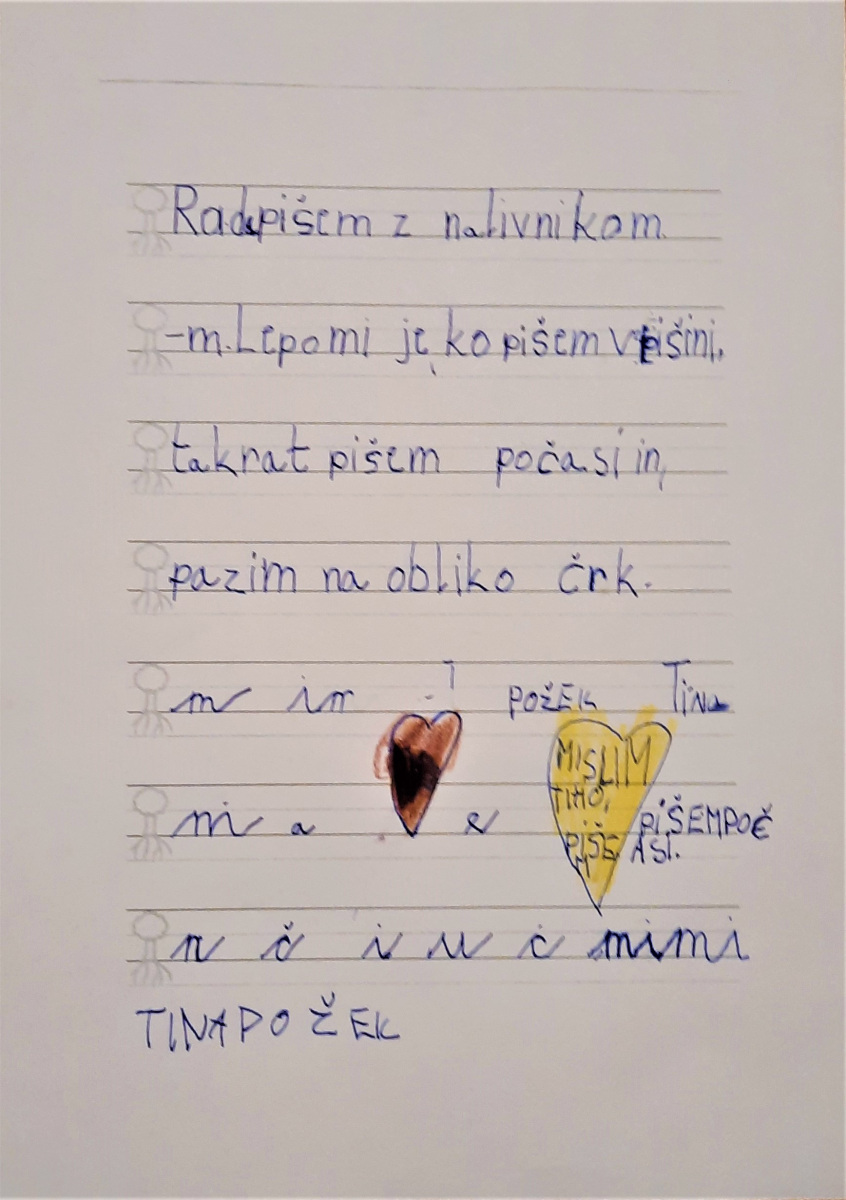 Radapišem z nalivnikom
-m.Lepomi je, ko pišem v pišini,
takrat pišem počasi in,
pazim na obliko črk.
m in POŽEK TiNa
MISLIM
TIHO,
m a e PiŠEMPOČ
PIŠE ASI.
M
n č i u c mimi
TINAPOŽEK